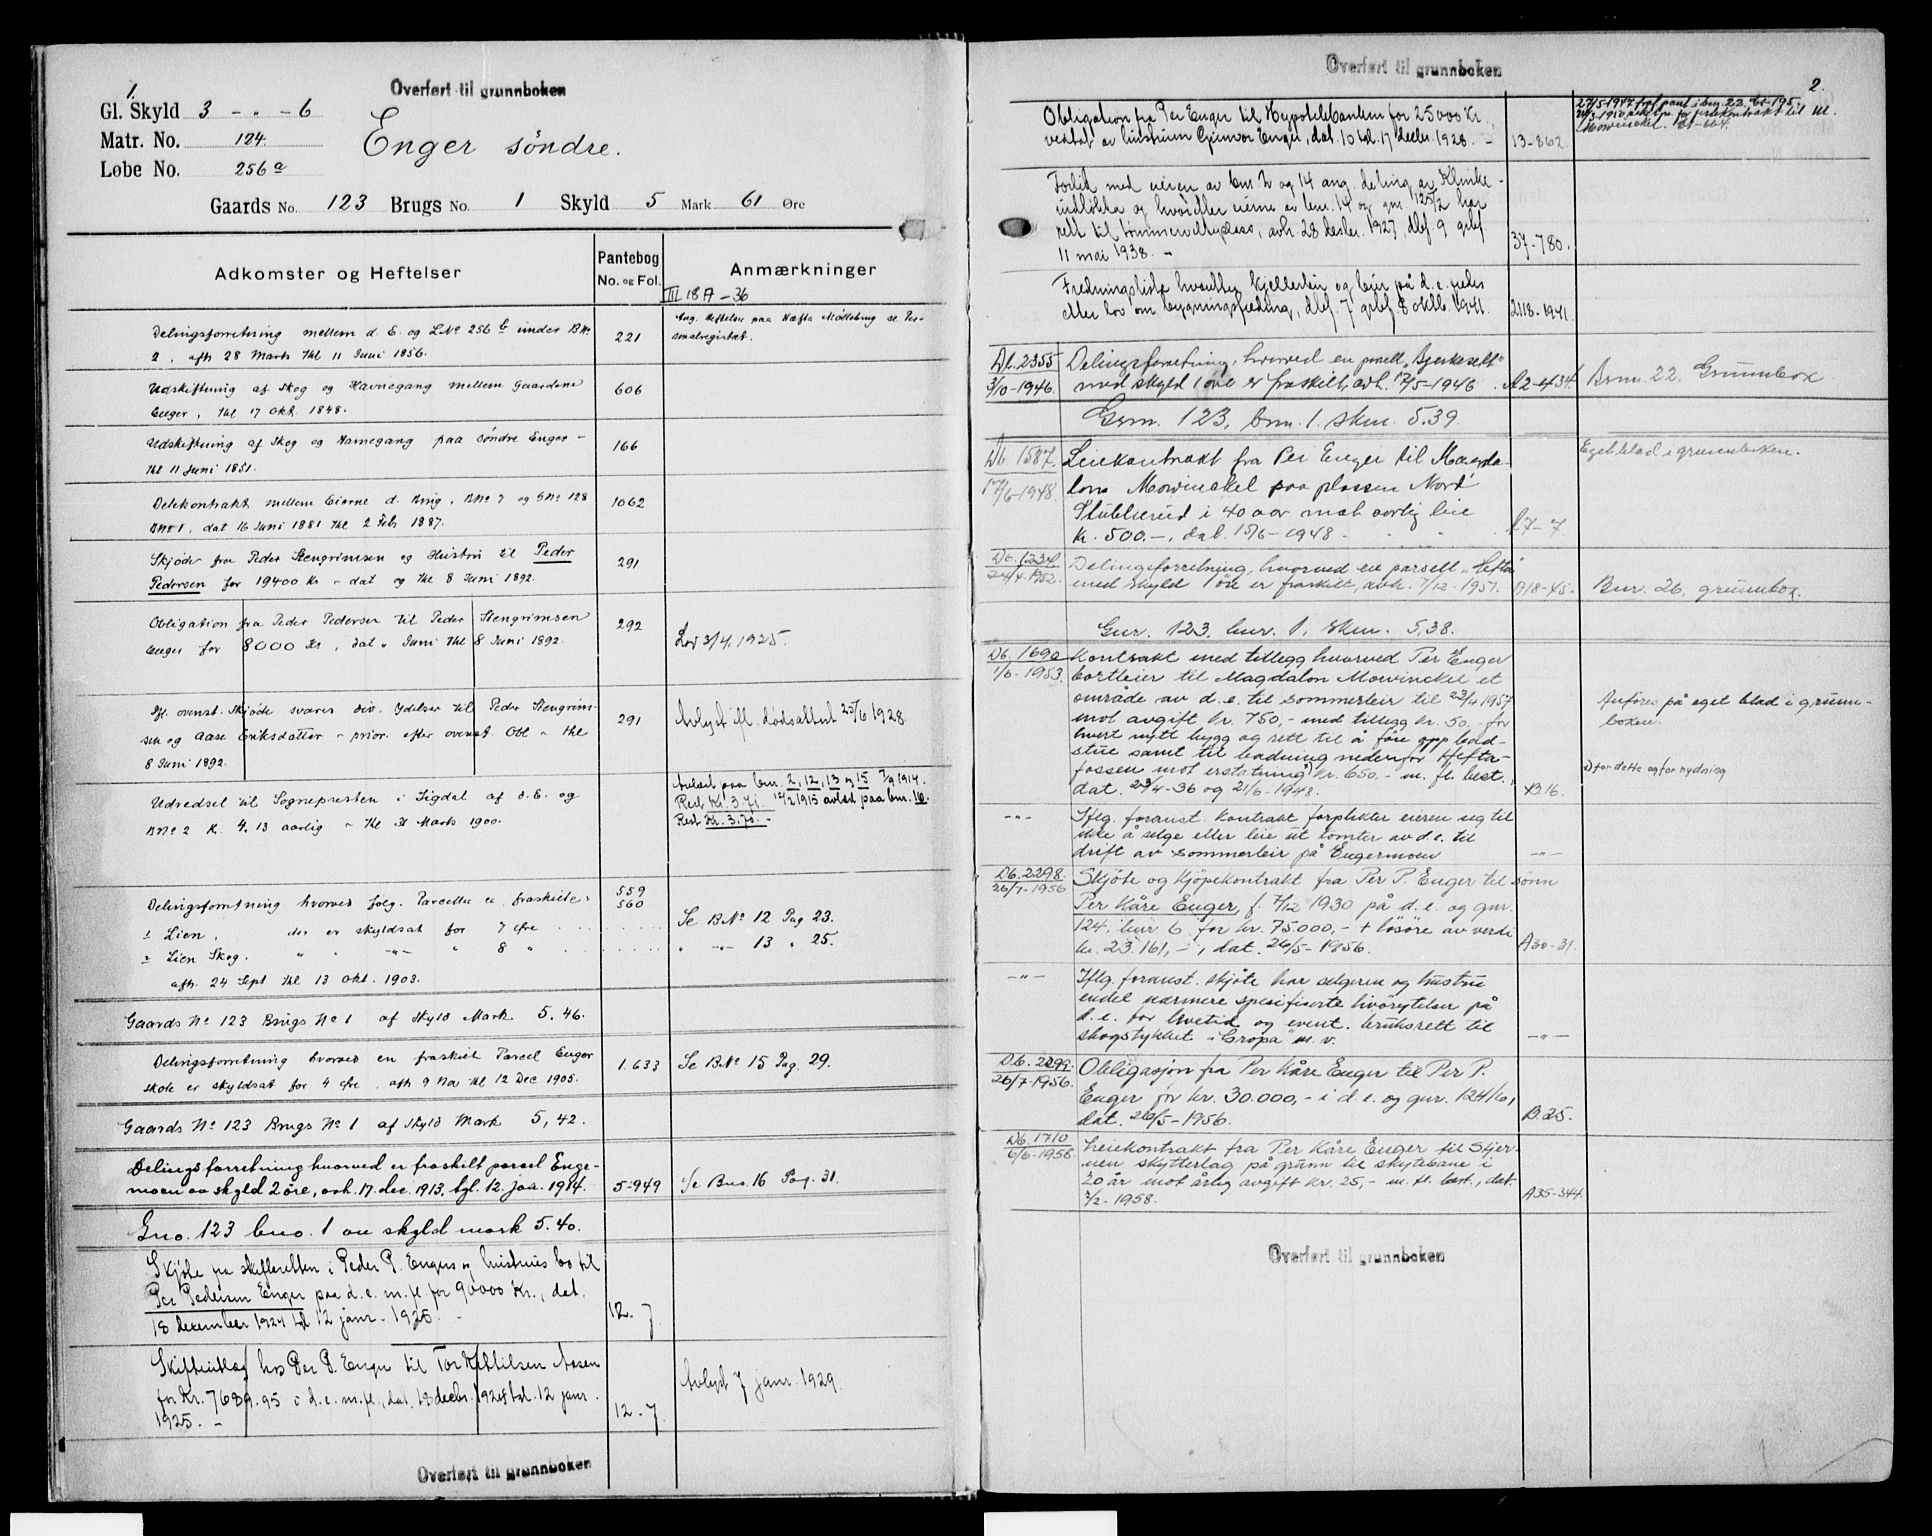 1.
Overført til grunnboken
Gl. Skyld 3 - „ - 6
Matr. No. 124
Løbe No. 256a
Enger söndre.
Gaards No. 123 Brugs No. 1 Skyld 5 Mark 61 Øre
Adkomster og Heftelser
Pantebog
No. og Fol.
Anmærkninger
III 18A - 36
Delingsforretning mellem d. E. og LNo 256 b under BNo
2, afh 28 Marts thl 11 Juni 1856.
221
Ang. Heftelser paa Hæfta Möllebrug se Per-
sonalregistret.
Udskiftning af Skog og Havnegang mellem Gaardene
Enger, thl 17 Okt. 1848.
606
Udskiftning af Skog og Havnegang paa söndre Enger -
thl 11 Juni 1851.
166
Delekontrakt mellem Eierne d. Brug, BNo 7 og GNo 128
BNo 1, dat 16 Juni 1881 thl 2 Feb 1887.
1062
Skjöde fra Peder Stengrimsen og Hustru til Peder
Pedersen for 19400 Kr - dat og thl 8 Juni 1892.
291
Obligation fra Peder Pedersen til Peder Stengrimsen
Enger for 8000 Kr, dat „ Juni thl 8 Juni 1892.
292
Lov 3/4, 1925.
Ifl. ovenst. Skjöde svares div. Ydelser til Peder Stengrim-
sen og Aase Eriksdatter - prior. efter ovenst. Obl - thl
8 Juni 1892.
291
Avlyst ifl. dödsattest 25/6 1928.
Udredsel til Sognepresten i Sigdal af d. E. og
BNo 2 K. 4,13 aarlig - thl 31 Marts 1900.
Avlöst paa bnr. 2, 12, 13 og 15 7/9 1914.
Rest Kr. 3.71. 12/2 1915 avlöst paa bnr. 16.
Rest Kr. 3.70. -
Delingsforretning hvorved fölg. Parceller er fraskilte:
559
560
1 Lien, der er skyldsat for 7 Øre
Se BNo 12 Pag 23.
2 Lien Skog. „ „ -„- „ 8 „
„ -„- 13 „ 25.
afh. 24 Sept thl 13 Okt. 1903.
Gaards No 123 Brugs No 1 af Skyld Mark 5,46.
Delingsforretning hvorved en fraskilt Parcel Enger
skole er skyldsat for 4 Øre, afh 9 No thl 12 Dec 1905.
1.633
Se BNo 15 Pag. 29.
Gaards No 123 Brugs No 1 af Skyld Mark 5,42.
Delingsforretning hvorved er fraskilt parsel Enge-
moen av skyld 2 öre, avh. 17. dec. 1913, tgl. 12. jan. 1914.
5-949
Se Bno. 16 Pag. 31.
Gno. 123 bno. 1 av skyld mark 5.40.
Skjöte fra skifteretten i Peder P. Engers og hustrus bo til
Per Pedersen Enger paa d. e. m. fl. for 90000 Kr., dat.
18 desember 1924 tgl 12 janr. 1925. -
12. 7
Skifteutlæg hos Per P. Enger til Tor Kittilsen Aasen
for Kr. 7689.95 i d. e. m. fl., dat. 18 decbr. 1924 tgl. 12 janr.
1925. -
12. 7.
Avlyst 7 janr. 1929.
Overført til grunnboken
Overført til grunnboken
2.
Obligation fra Per Enger til Hypotekbanken for 25000 Kr.,
vedtat av hustruen Gunvor Enger, dat. 10 tgl. 17 decbr. 1928. -
13-862
27/5-1947 fraf. pant i bnr. 22.
Mowinckel.
Forlik med eieren av bnr. 2 og 14 ang. deling av Klinke-
indlökka og hvorefter eierne av bnr. 14 og gnr. 125/2 har
rett til tömmervelteplass, avh. 28 decbr. 1927, dbf. 9 grbf.
11 mai 1938. -
37-780.
Fredningsliste hvorefter Kjellerstein og bur på d. e. fredes
etter lov om bygningsfredning, dbf. 7 grbf. 8 oktb. 1941.
2118-1941.
Db. 2355
3/10-1946.
Delingsforretning, hvorved en parsell „Bjerkeselt"
med skyld 1 öre er fraskilt, avh. 17/5-1946.
A2-434
Brnr. 22. Grunnbok
Gnr. 123, bnr. 1. skm. 5.39.
Db 1587.
17/6-1948.
Leiekontrakt fra Per Enger til Magda-
lon Mowinckel paa plassen Nord
Stubberud i 40 aar mot aarlig leie
kr. 500.-, dat. 15/6-1948.
A7-7
Eget blad i grunnboken.
Db. 1234
24/4-1952.
Delingsforretning, hvorved en parsell „Hefta"
med skyld 1 öre er fraskilt, avh. 7/12-1951.
A18-45.
Bnr. 26, grunnbok.
Gnr. 123. bnr. 1, skm. 5,38.
Db. 1690
1/6-1953.
Kontrakt med tillegg hvorved Per Enger
bortleier til Magdalon Mowinckel et
område av d. e. til sommerleir til 23/4 1957
mot avgift kr. 750,- med tillegg kr. 50,- for
hvert nytt bygg og rett til å före opp bad-
stue samt til badning nedenfor Hefta-
fossen mot erstatning x) kr. 650.- m. fl. best.
dat. 23/4-36 og 21/6-1948.
B16.
Anføres på eget blad i grunn-
boken.
x) for dette og for rydning
-„-
Iflg. foranst. kontrakt forplikter eieren seg til
ikke å selge eller leie ut tomter av d. e. til
drift av sommerleir på Engermoen
-„-
Db. 2298.
26/7-1956
Skjöte og kjöpekontrakt fra Per P. Enger til sönn
Per Kåre Enger, f. 7/12 1930 på d. e. og gnr.
124, bnr 6 for kr. 75.000,- + lösöre av verdi
kr. 23.161,-, dat. 26/5-1956.
A30-31.
-„-
Iflg. foranst. skjöte har selgeren og hustru
endel nærmere spesifiserte livörytelser på
d. e. for livetid og event. bruksrett til
skogstykket „Gropa" m. v.
-„-
Db. 2299.
26/7-1956.
Obligasjon fra Per Kåre Enger til Per P.
Enger for kr. 30.000,- i d. e. og gnr. 124/6,
dat. 26/5-1956.
B25.
Db. 1710
6/6-1958
Leiekontrakt fra Per Kåre Enger til Stjer-
nen skytterlag på grunn til skytebane i
20 år mot årlig avgift kr. 25,- m. fl. best., dat.
2/2-1958.
A35-344
Overført til grunnboken